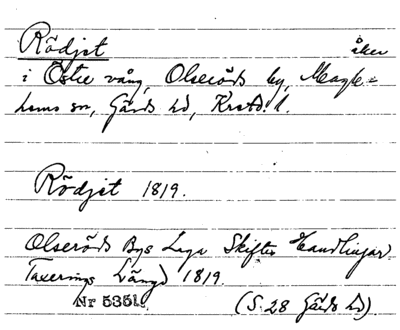 Rödjet åker
i Östre vång, Olseröds by, Magle-
hems sn, Gärds hd, Krstd. l.
Rödjet 1819.
Olseröds Bys Laga Skiftes Handlingar.
Taxerings Längd 1819.
Nr 5351.
(S. 28 Gärds hd)